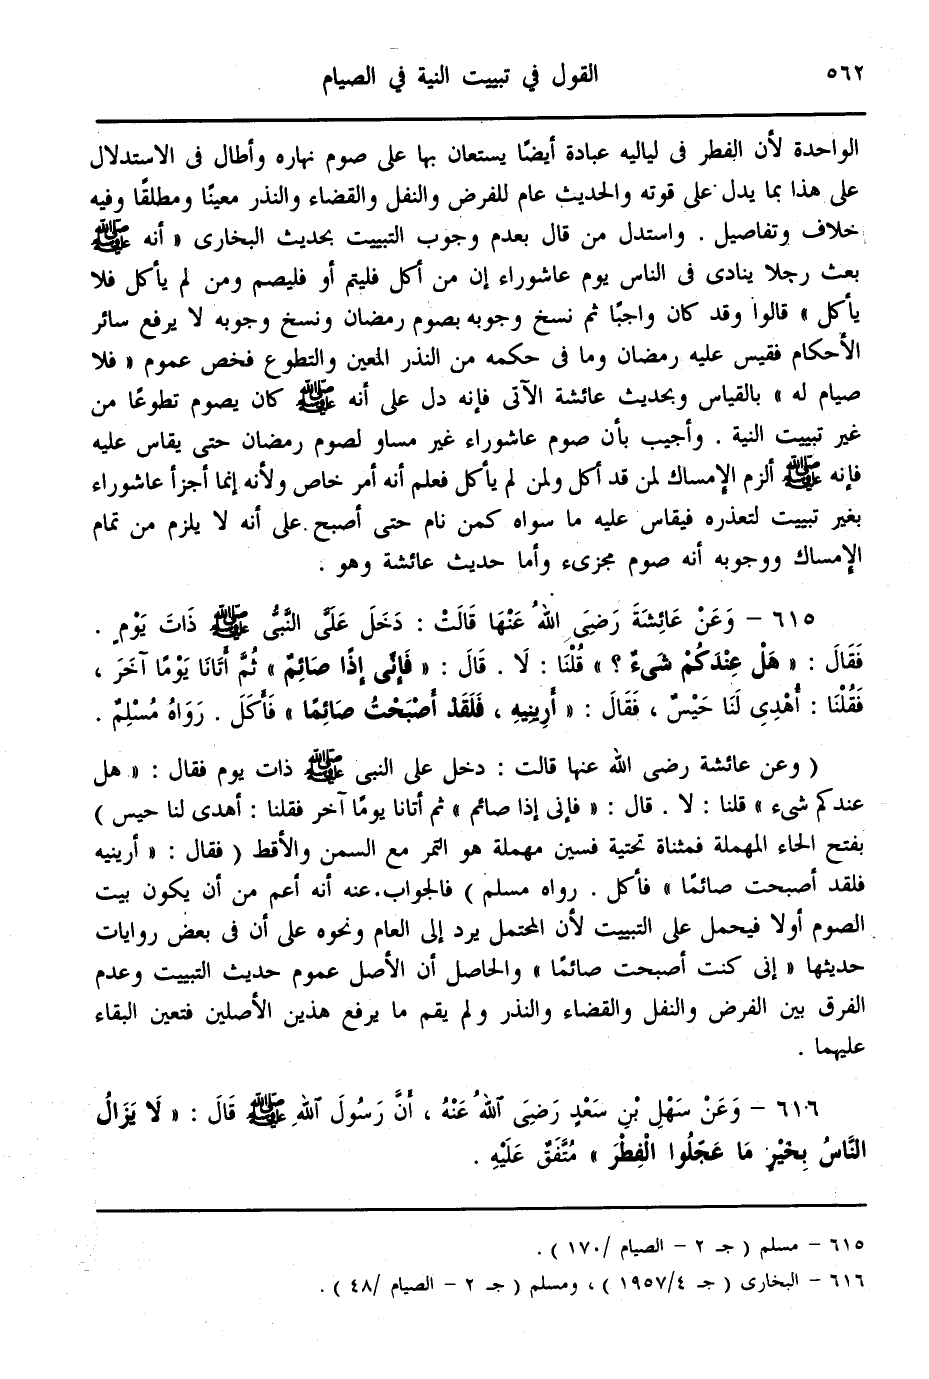 ٥٦٢
القول في تبييت النية في الصيام
الواحدة لأن الفطر فى لياليه عبادة أيضًا يستعان بها على صوم نهاره وأطال فى الاستدلال
على هذا بما يدل على قوته والحديث عام للفرض والنفل والقضاء والنذر معينًا ومطلقًا وفيه
خلاف وتفاصيل . واستدل من قال بعدم وجوب التبييت بحديث البخارى « أنه ﷺ
بعث رجلا ينادى فى الناس يوم عاشوراء إن من أكل فليتم أو فليصم ومن لم يأكل فلا
يأكل » قالوا وقد كان واجبًا ثم نسخ وجوبه بصوم رمضان ونسخ وجوبه لا يرفع سائر
الأحكام فقيس عليه رمضان وما فى حكمه من النذر المعين والتطوع فخص عموم « فلا
صيام له » بالقياس وبحديث عائشة الآتى فإنه دل على أنه ﷺ كان يصوم تطوعًا من
غير تبييت النية . وأجيب بأن صوم عاشوراء غير مساو لصوم رمضان حتى يقاس عليه
فإنه ﷺ ألزم الإمساك لمن قد أكل ولمن لم يأكل فعلم أنه أمر خاص ولأنه إنما أجزأ عاشوراء
بغير تبييت لتعذره فيقاس عليه ما سواه كمن نام حتى أصبح على أنه لا يلزم من تمام
الإمساك ووجوبه أنه صوم مجزىء وأما حديث عائشة وهو .
٦١٥ – وَعَنْ عَائِشَةَ رَضِىَ اللهُ عَنْهَا قَالَتْ : دَخَلَ عَلَىَّ النَّبِىُّ ﷺ ذَاتَ يَوْمٍ .
فَقَالَ : « هَلْ عِنْدَكُمْ شَىءٌ ؟ » قُلْنَا : لَا . قَالَ : « فَإِنِّى إِذًا صَائِمٌ » ثُمَّ أَتَانَا يَوْمًا آخَرَ ،
فَقُلْنَا : أُهْدِىَ لَنَا حَيْسٌ ، فَقَالَ : « أَرِينِيهِ ، فَلَقَدْ أَصْبَحْتُ صَائِمًا » فَأَكَلَ . رَوَاهُ مُسْلِمٌ .
( وعن عائشة رضى الله عنها قالت : دخل على النبى ﷺ ذات يوم فقال : « هل
عندكم شىء » قلنا : لا . قال : « فإنى إذا صائم » ثم أتانا يومًا آخر فقلنا : أهدى لنا حيس )
بفتح الحاء المهملة فمثناة تحتية فسين مهملة هو التمر مع السمن والأقط ( فقال : « أرينيه
فلقد أصبحت صائمًا » فأكل . رواه مسلم ) فالجواب عنه أنه أعم من أن يكون بيت
الصوم أولا فيحمل على التبييت لأن المحتمل يرد إلى العام ونحوه على أن فى بعض روايات
حديثها « إنى كنت أصبحت صائمًا » والحاصل أن الأصل عموم حديث التبييت وعدم
الفرق بين الفرض والنفل والقضاء والنذر ولم يقم ما يرفع هذين الأصلين فتعين البقاء
عليهما .
٦١٦ – وَعَنْ سَهْلِ بْنِ سَعْدٍ رَضِىَ اللهُ عَنْهُ ، أَنَّ رَسُولَ اللهِ ﷺ قَالَ : « لَا يَزَالُ
النَّاسُ بِخَيْرٍ مَا عَجَّلُوا الْفِطْرَ » مُتَّفَقٌ عَلَيْهِ .
٦١٥ – مسلم ( جـ ٢ – الصيام /١٧٠ ) .
٦١٦ – البخارى ( جـ ١٩٥٧/٤ ) ، ومسلم ( جـ ٢ – الصيام /٤٨ ) .